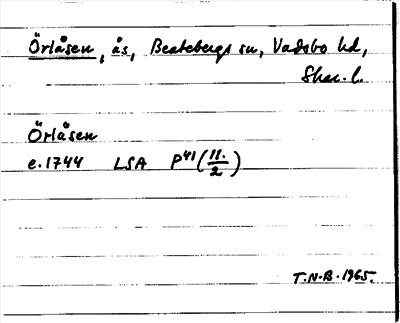 Örlåsen, ås, Beatebergs sn, Vadsbo hd,
Skar. l.
Örlåsen
e. 1744 LSA P41 (11./2.)
T.N.B. 1965.